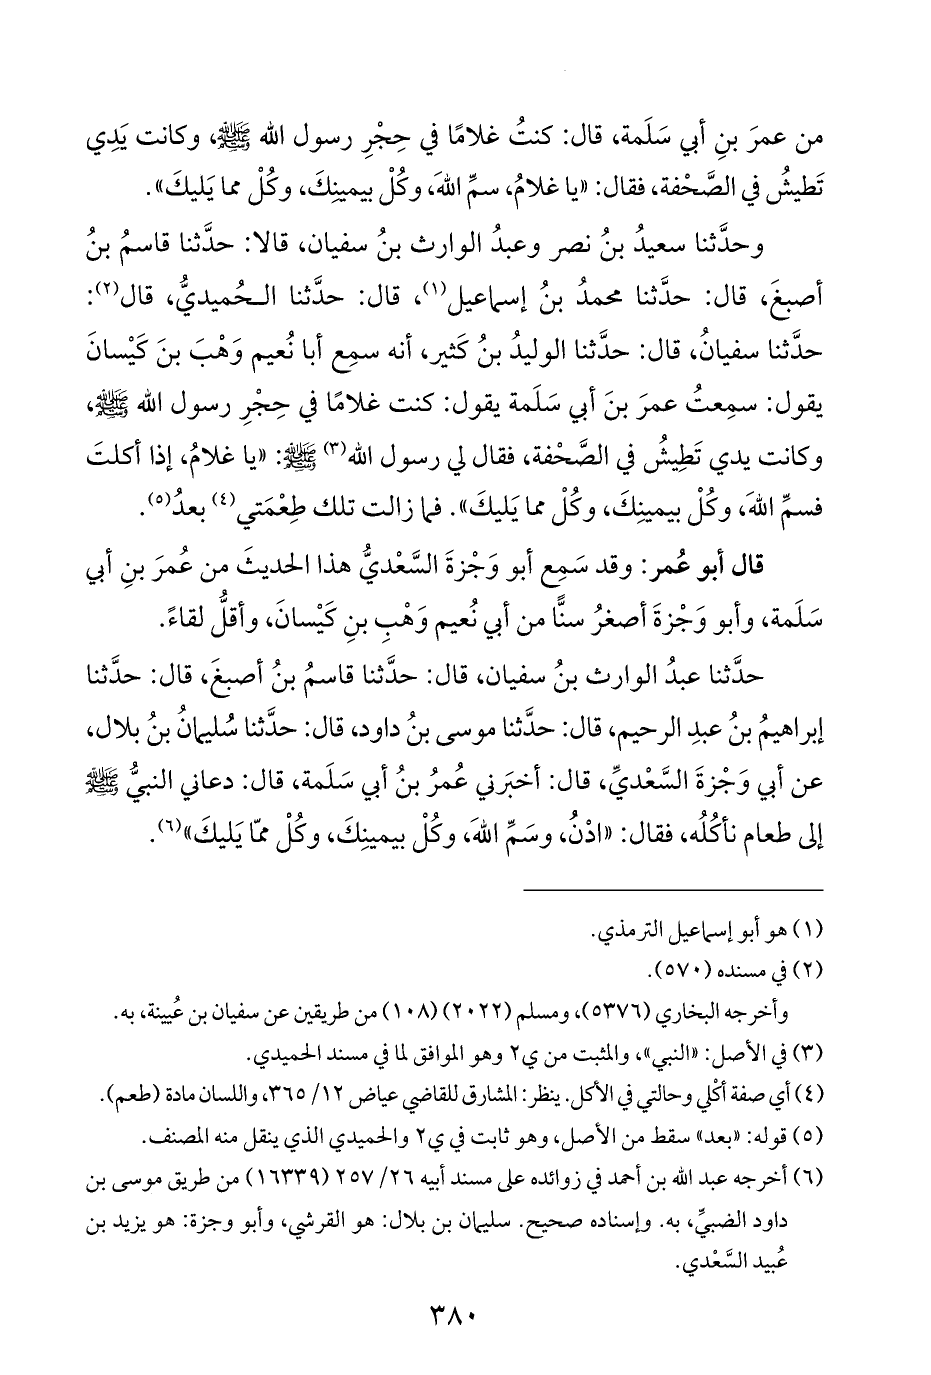 من عمرَ بنِ أبي سَلَمة، قال: كنتُ غلامًا في حِجْرِ رسول الله ﷺ، وكانت يَدِي
تَطيشُ في الصَّحْفة، فقال: «يا غلامُ، سمِّ اللهَ، وكُلْ بيمينِكَ، وكُلْ مما يَليكَ».
وحدَّثنا سعيدُ بنُ نصر وعبدُ الوارث بنُ سفيان، قالا: حدَّثنا قاسمُ بنُ
أصبغَ، قال: حدَّثنا محمدُ بنُ إسماعيل(١)، قال: حدَّثنا الـحُميديُّ، قال(٢):
حدَّثنا سفيانُ، قال: حدَّثنا الوليدُ بنُ كَثير، أنه سمِع أبا نُعيم وَهْبَ بنَ كَيْسانَ
يقول: سمِعتُ عمرَ بنَ أبي سَلَمة يقول: كنت غلامًا في حِجْرِ رسول الله ﷺ،
وكانت يدي تَطِيشُ في الصَّحْفة، فقال لي رسول الله(٣) ﷺ: «يا غلامُ، إذا أكلتَ
فسمِّ اللهَ، وكُلْ بيمينِكَ، وكُلْ مما يَليكَ». فما زالت تلك طِعْمَتي(٤) بعدُ(٥).
قال أبو عُمر: وقد سَمِع أبو وَجْزةَ السَّعْديُّ هذا الحديثَ من عُمرَ بنِ أبي
سَلَمة، وأبو وَجْزةَ أصغرُ سنًّا من أبي نُعيم وَهْبِ بنِ كَيْسانَ، وأقلُّ لقاءً.
حدَّثنا عبدُ الوارث بنُ سفيان، قال: حدَّثنا قاسمُ بنُ أصبغَ، قال: حدَّثنا
إبراهيمُ بنُ عبدِ الرحيم، قال: حدَّثنا موسى بنُ داود، قال: حدَّثنا سُليمانُ بنُ بلال،
عن أبي وَجْزةَ السَّعْديِّ، قال: أخبَرني عُمرُ بنُ أبي سَلَمة، قال: دعاني النبيُّ ﷺ
إلى طعام نأكُلُه، فقال: «ادْنُ، وسَمِّ اللهَ، وكُلْ بيمينِكَ، وكُلْ ممّا يَليكَ»(٦).
(١) هو أبو إسماعيل الترمذي.
(٢) في مسنده (٥٧٠).
وأخرجه البخاري (٥٣٧٦)، ومسلم (٢٠٢٢) (١٠٨) من طريقين عن سفيان بن عُيينة، به.
(٣) في الأصل: «النبي»، والمثبت من ي٢ وهو الموافق لما في مسند الحميدي.
(٤) أي صفة أكْلي وحالتي في الأكل. ينظر: المشارق للقاضي عياض ١٢/ ٣٦٥، واللسان مادة (طعم).
(٥) قوله: «بعد» سقط من الأصل، وهو ثابت في ي٢ والحميدي الذي ينقل منه المصنف.
(٦) أخرجه عبد الله بن أحمد في زوائده على مسند أبيه ٢٦/ ٢٥٧ (١٦٣٣٩) من طريق موسى بن
داود الضبيِّ، به. وإسناده صحيح. سليمان بن بلال: هو القرشي، وأبو وجزة: هو يزيد بن
عُبيد السَّعْدي.
٣٨٠